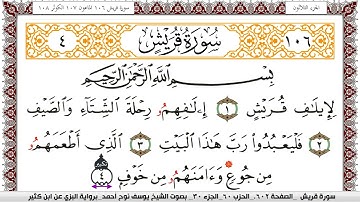 الجزء الثلاثون
سورة قريش ١٠٦ الماعون ١٠٧ الكوثر ١٠٨
١٠٦ سُورَةُ قُرَيْشٍ ٤
بِسْمِ اللَّهِ الرَّحْمَٰنِ الرَّحِيمِ
لِإِيلَافِ قُرَيْشٍ ١ إِۦلَافِهِمُۥ رِحْلَةَ الشِّتَآءِ وَالصَّيْفِ
٢ فَلْيَعْبُدُوا۟ رَبَّ هَٰذَا الْبَيْتِ ٣ الَّذِى أَطْعَمَهُمُۥ
مِن جُوعٍ وَءَامَنَهُمُۥ مِنْ خَوْفٍ ٤
سورة قريش . الصفحة ٦٠٢ . الحزب ٦٠ الجزء ٣٠ بصوت الشيخ يوسف نوح أحمد برواية البزي عن ابن كثير